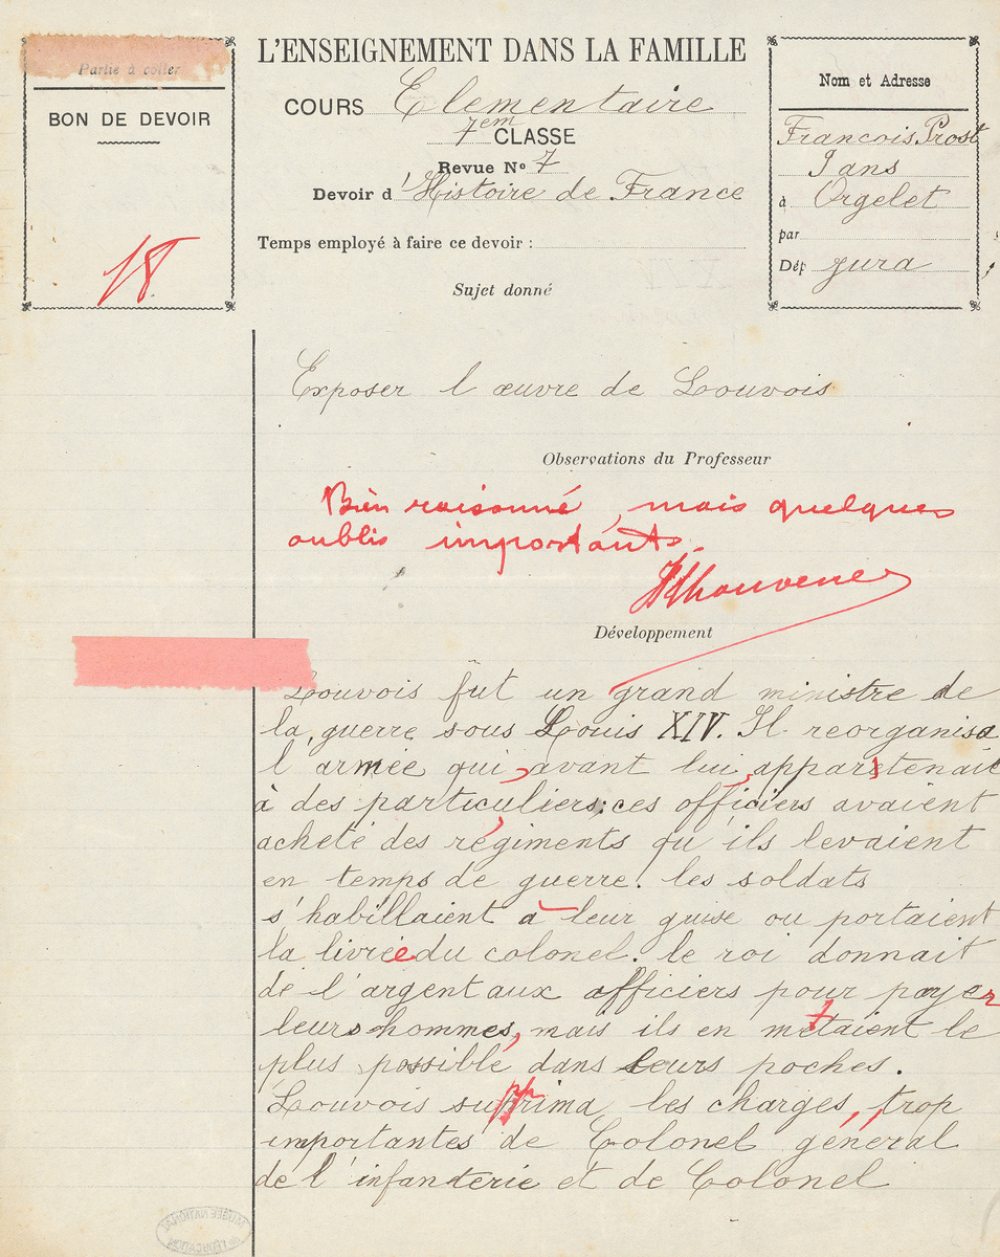 Partie à coller
BON DE DEVOIR
18
L'ENSEIGNEMENT DANS LA FAMILLE
COURS Elementaire
7em CLASSE
Revue No 7
Devoir d'Histoire de France
Temps employé à faire ce devoir :
Sujet donné
Nom et Adresse
Francois Prost
9 ans
à Orgelet
par
Dép jura
Exposer l œuvre de Louvois
Observations du Professeur
Bien raisonné, mais quelques
oublis importants.
Développement
Louvois fut un grand ministre de
la guerre sous Louis XIV. Il reorganisa
l armée qui, avant lui, appartenait
à des particuliers; ces officiers avaient
acheté des régiments qu'ils levaient
en temps de guerre. les soldats
s'habillaient à leur guise ou portaient
la livrée du colonel. le roi donnait
de l'argent aux officiers pour payer
leurs hommes, mais ils en mettaient le
plus possible dans leurs poches.
Louvois supprima les charges, trop
importantes de Colonel général
de l'infanterie et de Colonel
MUSÉE NATIONAL
DE L'ÉDUCATION